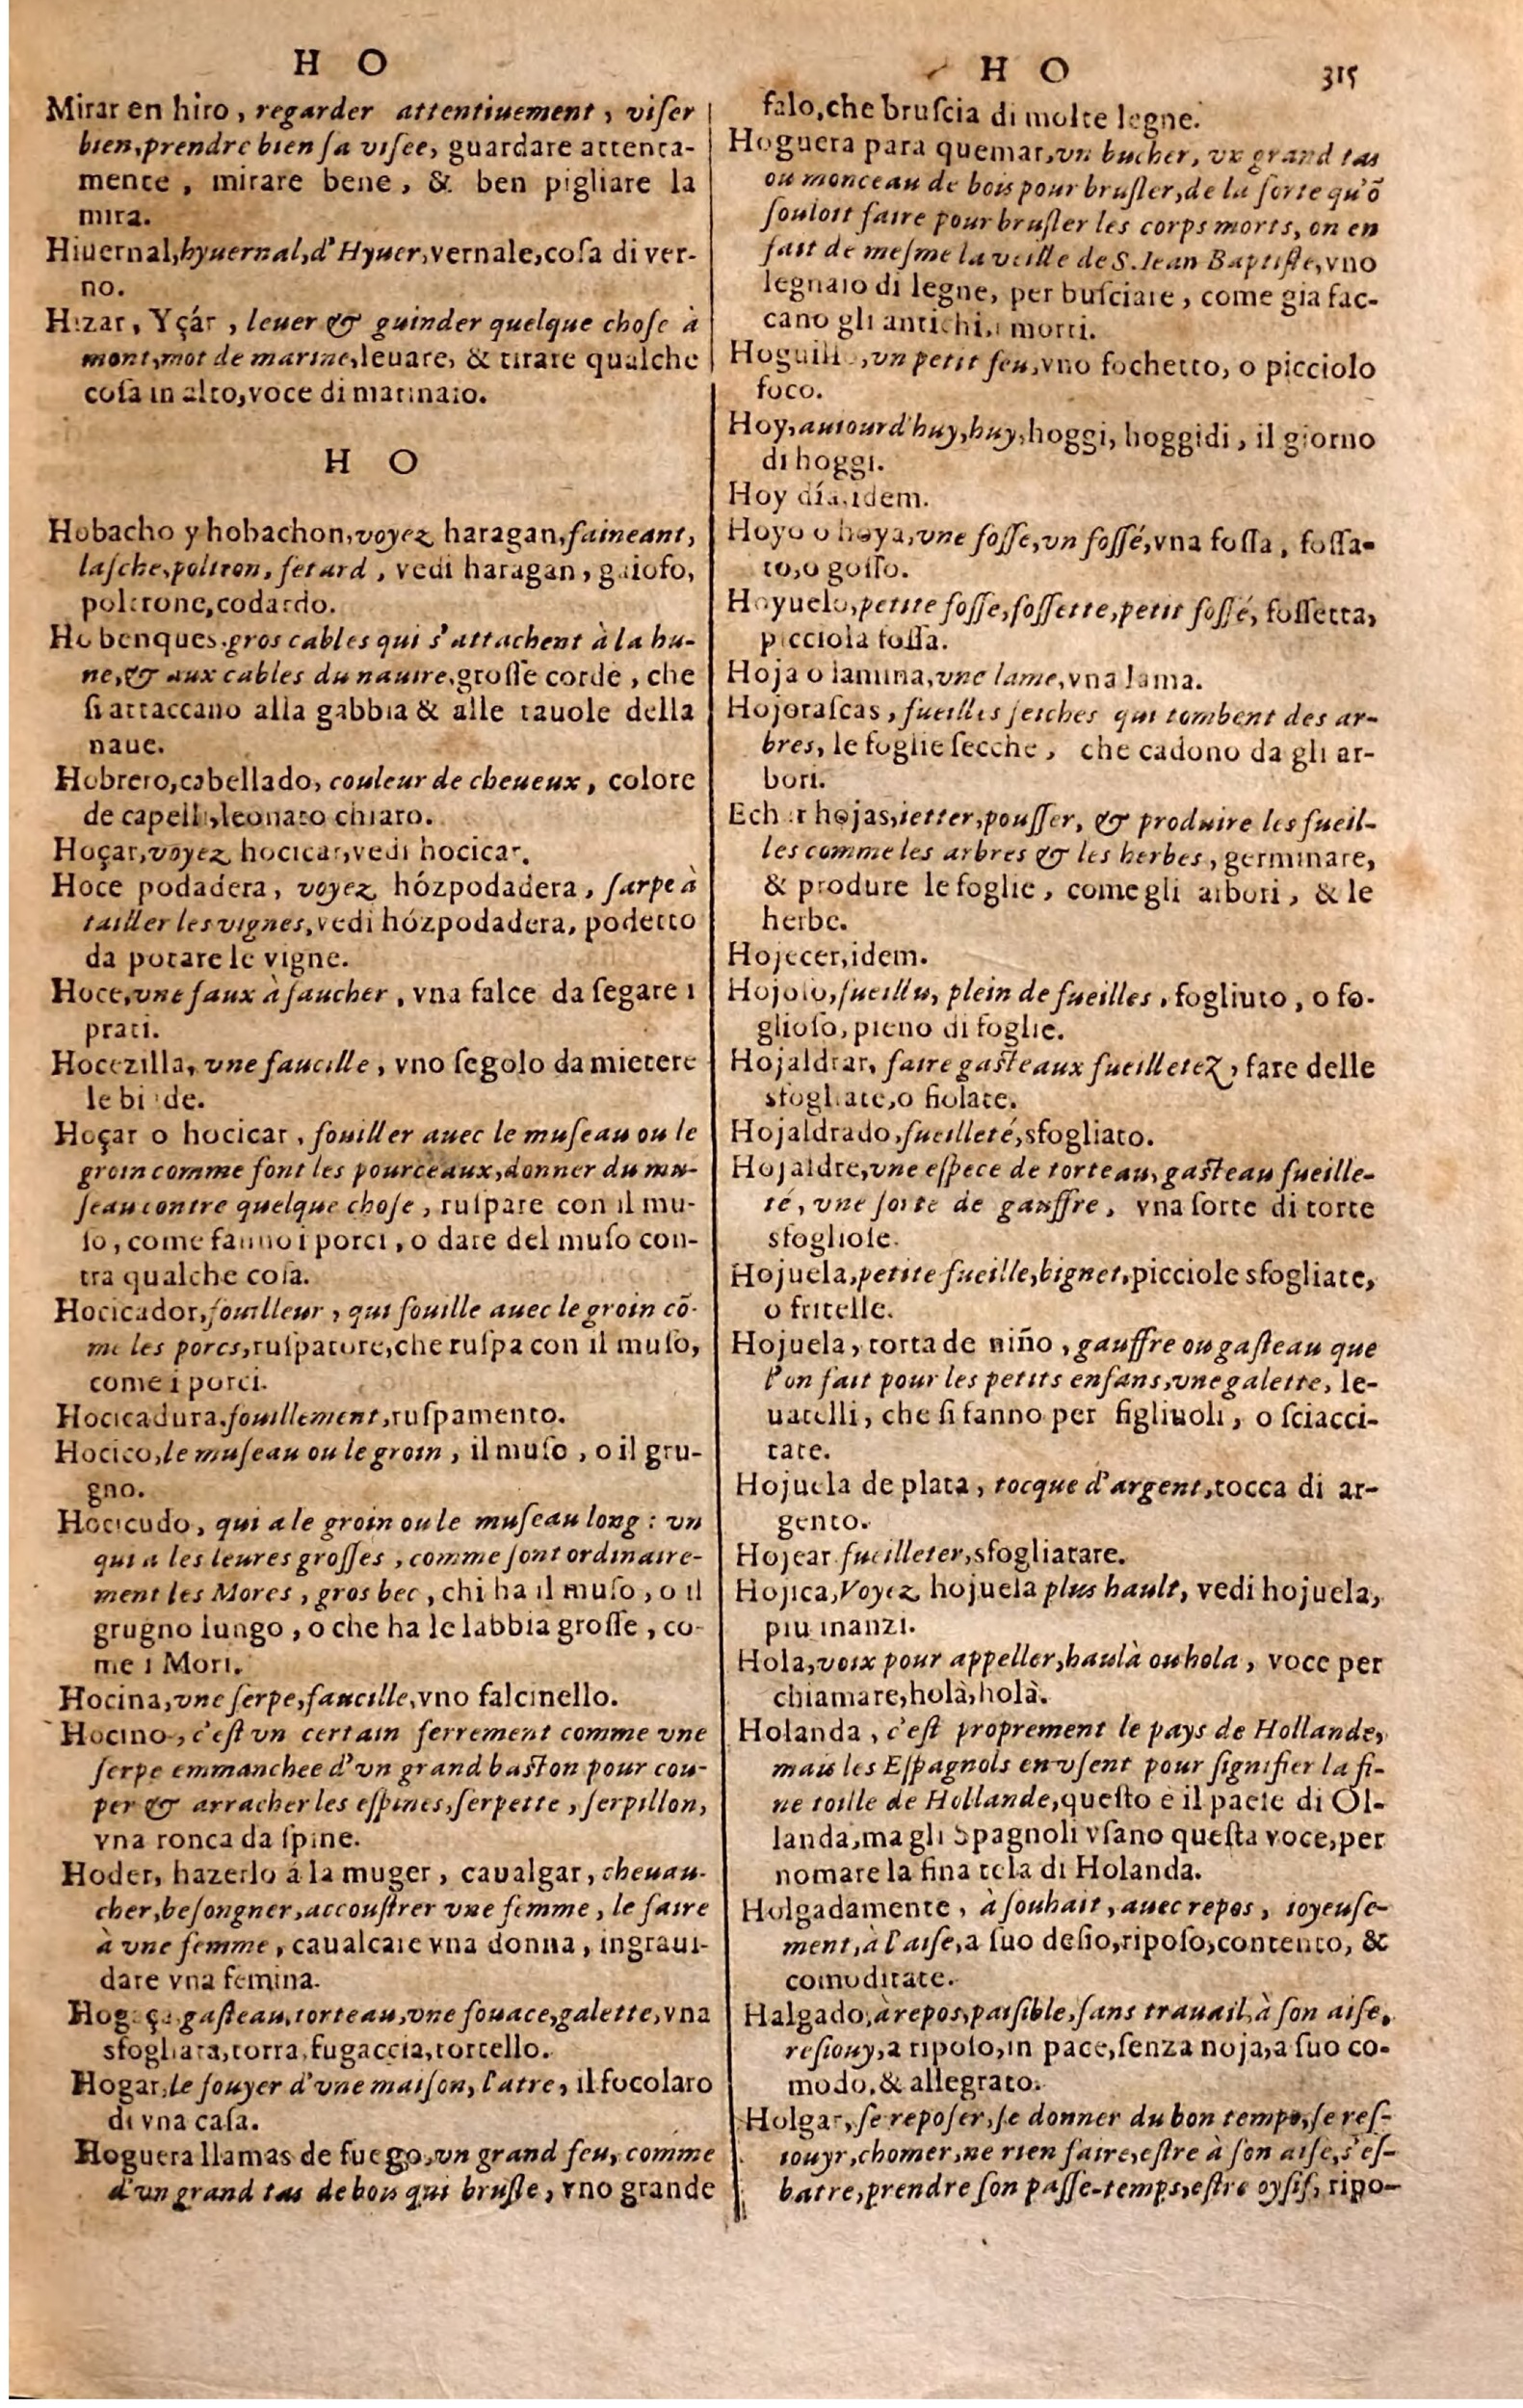 H O
Mirar en hiro, regarder attentiuement, viſer
bien, prendre bien ſa viſee, guardare attenta-
mente, mirare bene, & ben pigliare la
mira.
Hiuernal, hyuernal, d'Hyuer, vernale, coſa di ver-
no.
Hizar, Yçár, leuer & guinder quelque choſe à
mont, mot de marine, leuare, & tirare qualche
coſa in alto, voce di marinaio.
H O
Hobacho y hobachon, voyez haragan, faineant,
laſche, poltron, fetard, vedi haragan, gaiofo,
poltrone, codardo.
Hobenques. gros cables qui s'attachent à la hu-
ne, & aux cables du nauire, groſſe corde, che
ſi attaccano alla gabbia & alle tauole della
naue.
Hobrero, cabellado, couleur de cheueux, colore
de capelli, leonato chiaro.
Hoçar, voyez hocicar, vedi hocicar.
Hoce podadera, voyez hózpodadera, ſarpe à
tailler les vignes, vedi hózpodadera, podetto
da potare le vigne.
Hoce, vne faux à faucher, vna falce da ſegare i
prati.
Hocezilla, vne faucille, vno ſegolo da mietere
le biade.
Hoçar o hocicar, fouiller auec le muſeau ou le
groin comme font les pourceaux, donner du mu-
ſeau contre quelque choſe, ruſpare con il mu-
ſo, come fanno i porci, o dare del muſo con-
tra qualche coſa.
Hocicador, fouilleur, qui fouille auec le groin cõ-
me les porcs, ruſpatore, che ruſpa con il muſo,
come i porci.
Hocicadura. fouillement, ruſpamento.
Hocico, le muſeau ou le groin, il muſo, o il gru-
gno.
Hocicudo, qui a le groin ou le muſeau long: vn
qui a les leures groſſes, comme ſont ordinaire-
ment les Mores, gros bec, chi ha il muſo, o il
grugno lungo, o che ha le labbia groſſe, co-
me i Mori.
Hocina, vne ſerpe, faucille, vno falcinello.
Hocino, c'eſt vn certain ferrement comme vne
ſerpe emmanchee d'vn grand baſton pour cou-
per & arracher les eſpines, ſerpette, ſerpillon,
vna ronca da ſpine.
Hoder, hazerlo á la muger, caualgar, cheuau-
cher, beſongner, accouſtrer vne femme, le faire
à vne femme, caualcare vna donna, ingraui-
dare vna femina.
Hogaça. gaſteau, torteau, vne fouace, galette, vna
sfogliata, torta, fugaccia, tortello.
Hogar, le fouyer d'vne maiſon, l'atre, il focolaro
di vna caſa.
Hoguera llamas de fuego, vn grand feu, comme
d'vn grand tas de bois qui bruſle, vno grande
H O 315
falo, che bruſcia di molte legne.
Hoguera para quemar, vn bucher, vn grand tas
ou monceau de bois pour bruſler, de la ſorte qu'õ
ſouloit faire pour bruſler les corps morts, on en
fait de meſme la veille de S. Iean Baptiſte, vno
legnaio di legne, per buſciare, come gia fac-
cano gli antichi, i morti.
Hoguillo, vn petit feu, vno fochetto, o picciolo
foco.
Hoy, auiourd'huy, huy, hoggi, hoggidi, il giorno
di hoggi.
Hoy día, idem.
Hoyo o hoya, vne foſſe, vn foſſé, vna foſſa, foſſa-
to, o goſſo.
Hoyuelo, petite foſſe, foſſette, petit foſſé, foſſetta,
picciola foſſa.
Hoja o lamina, vne lame, vna lama.
Hojoraſcas, fueilles ſeiches qui tombent des ar-
bres, le foglie ſecche, che cadono da gli ar-
bori.
Echar hojas, ietter, pouſſer, & produire les fueil-
les comme les arbres & les herbes, germinare,
& produre le foglie, come gli arbori, & le
herbe.
Hojecer, idem.
Hojoſo, fueillu, plein de fueilles, fogliuto, o fo-
glioſo, pieno di foglie.
Hojaldrar, faire gaſteaux fueilletez, fare delle
sfogliate, o fiolate.
Hojaldrado, fueilleté, sfogliato.
Hojaldre, vne eſpece de torteau, gaſteau fueille-
té, vne ſorte de gauffre, vna ſorte di torte
sfoglioſe.
Hojuela, petite fueille, bignet, picciole sfogliate,
o fritelle.
Hojuela, torta de niño, gauffre ou gaſteau que
l'on fait pour les petits enfans, vne galette, le-
uatelli, che ſi fanno per figliuoli, o ſciacci-
tate.
Hojuela de plata, tocque d'argent, tocca di ar-
gento.
Hojear fueilleter, sfogliatare.
Hojica, Voyez hojuela plus hault, vedi hojuela,
piu inanzi.
Hola, voix pour appeller, haulà ou hola, voce per
chiamare, holà, holà.
Holanda, c'eſt proprement le pays de Hollande,
mais les Eſpagnols en vſent pour ſignifier la fi-
ne toille de Hollande, queſto è il paeſe di Ol-
landa, ma gli Spagnoli vſano queſta voce, per
nomare la fina tela di Holanda.
Holgadamente, à ſouhait, auec repos, ioyeuſe-
ment, à l'aiſe, a ſuo deſio, ripoſo, contento, &
comoditate.
Halgado, à repos, paiſible, ſans trauail, à ſon aiſe,
reſiouy, a ripoſo, in pace, ſenza noja, a ſuo co-
modo, & allegrato.
Holgar, ſe repoſer, ſe donner du bon temps, ſe reſ-
iouyr, chomer, ne rien faire, eſtre à ſon aiſe, s'eſ-
batre, prendre ſon paſſe-temps, eſtre oyſif, ripo-